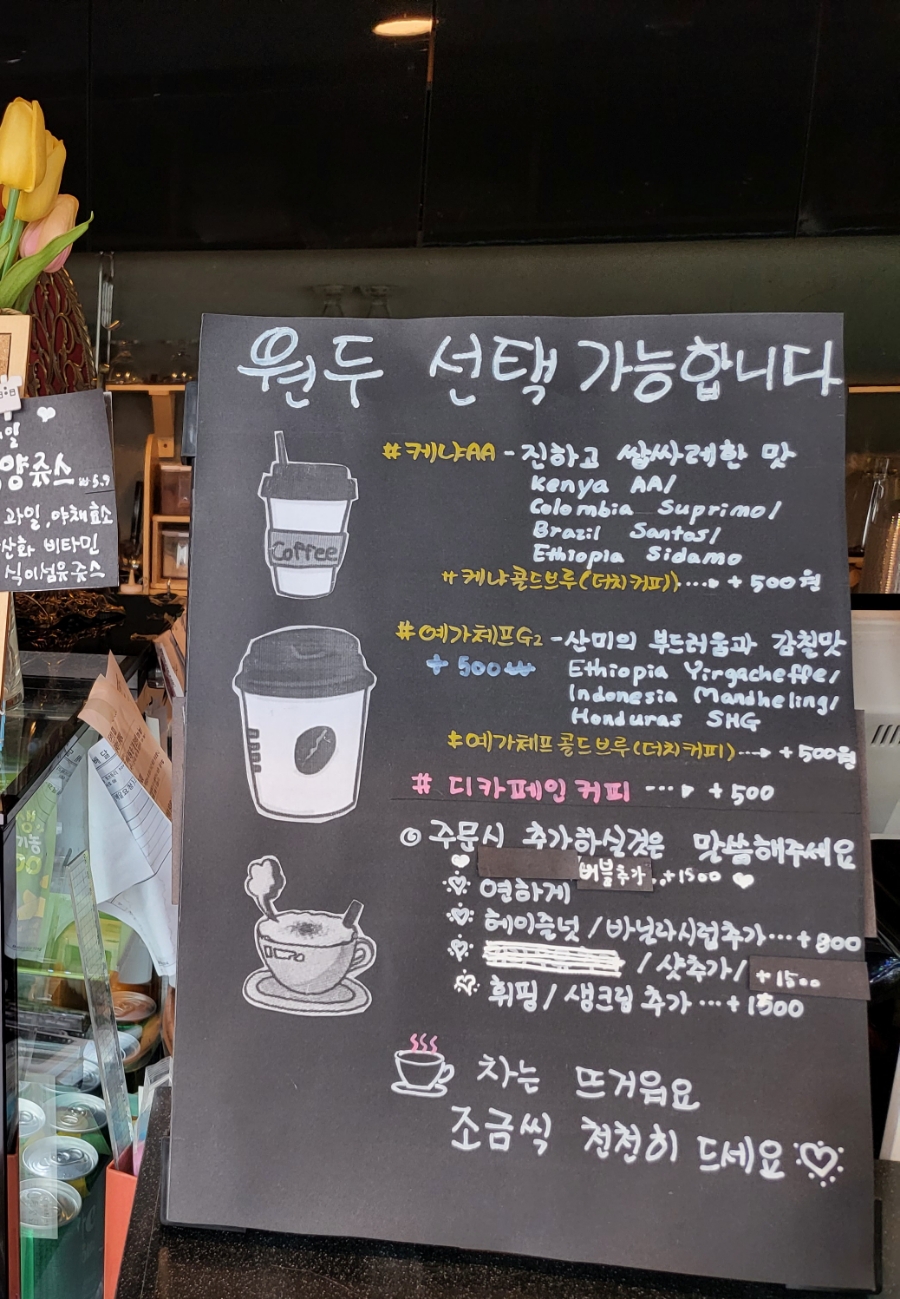 원두 선택 가능합니다
#케냐AA - 진하고 쌉싸레한 맛
Kenya AA/
Colombia Suprimo/
Brazil Santos/
Ethiopia Sidamo
#케냐콜드브루(더치커피)····▸ + 500원
#예가체프G2 - 산미의 부드러움과 감칠맛
+ 500₩
Ethiopia Yirgacheffe/
Indonesia Mandheling/
Honduras SHG
#예가체프 콜드브루(더치커피)···▸ + 500원
# 디카페인 커피 ····▸ + 500
◎ 주문시 추가하실것은 맛씀해주세요
버블추가...+1500
연하게
헤이즐넛 / 바닐라시럽추가···+800
/ 샷추가/ +1500
휘핑 / 생크림 추가 ··· + 1500
차는 뜨거워요
조금씩 천천히 드세요
Coffee
양쥬스 ₩5.9
과일, 야채효소
산화 비타민
식이섬유쥬스